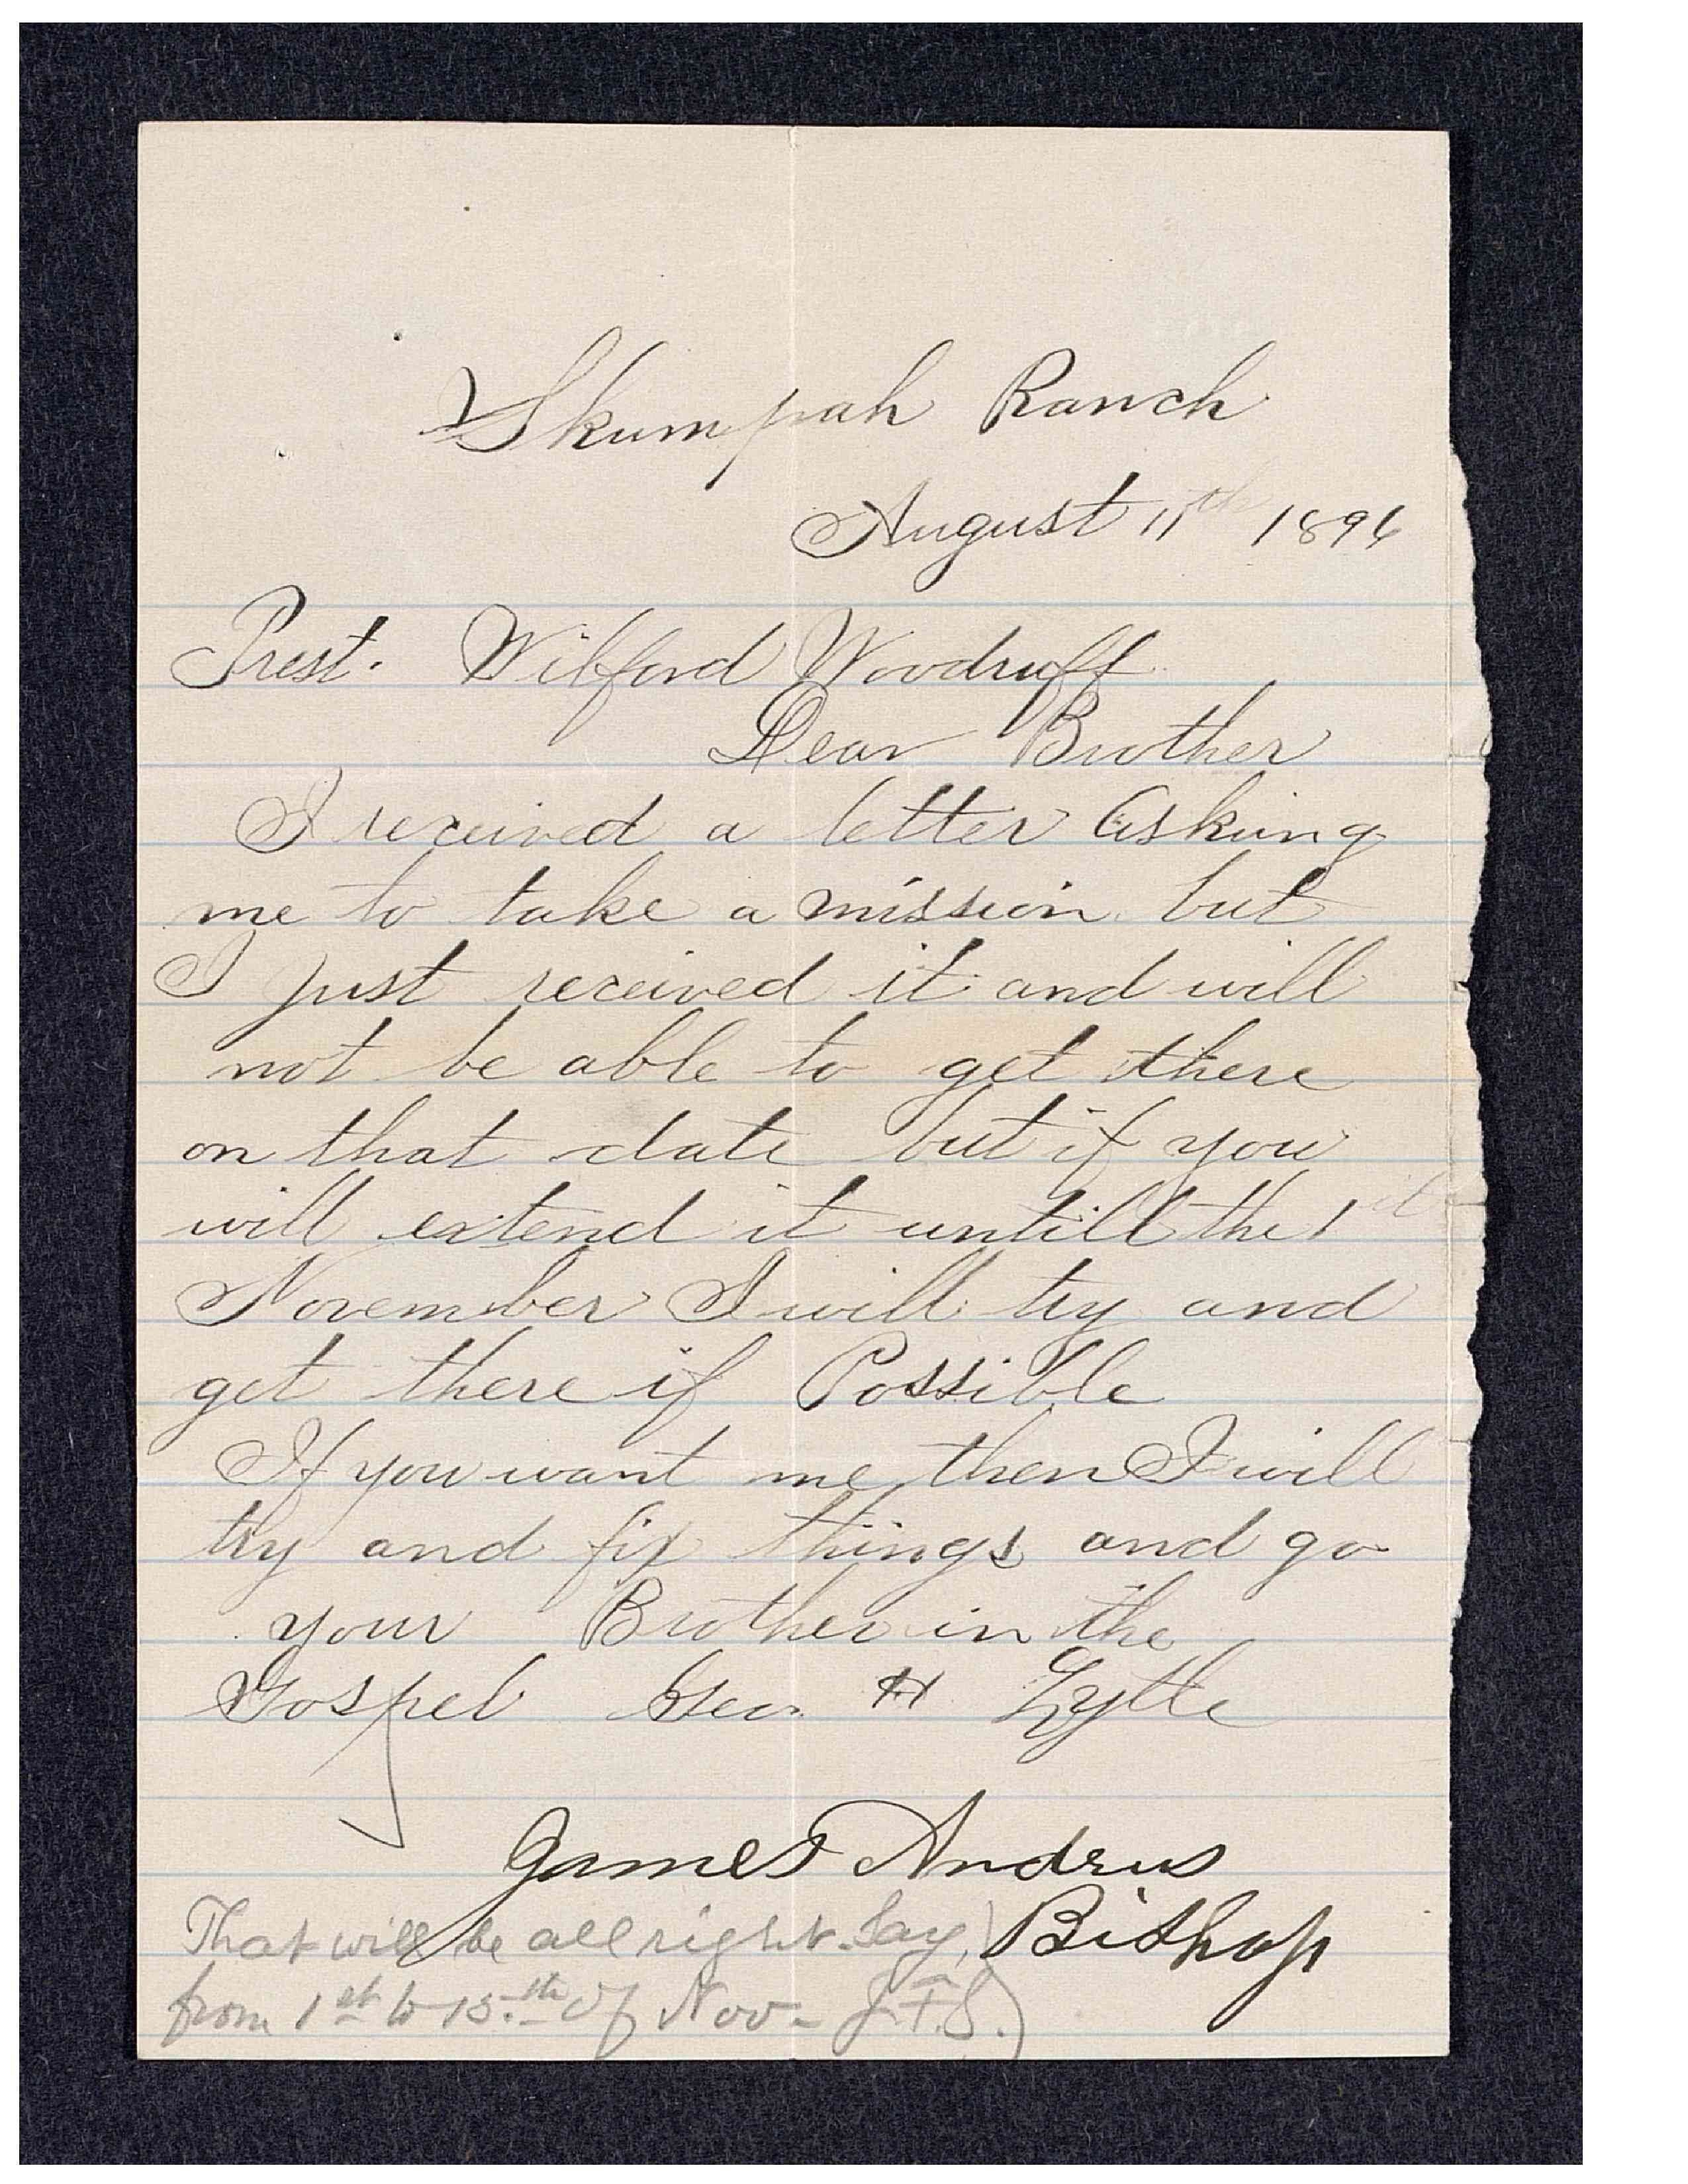 Skumpah Ranch
August 11th 1896
Prest. Wilford Woodruff
Dear Brother
I received a letter Asking
me to take a mission but
I just received it and will
not be able to get there
on that date but if you
will extend it untill the 1st
November I will try and
get there if Possible
If you want me then I will
try and fix things and go
your Brother in the
Gospel Geo. H Lytle
James Andrus
Bishop
That will be all right. Say,
from 1st to 15.th of Nov- J.F.S.)